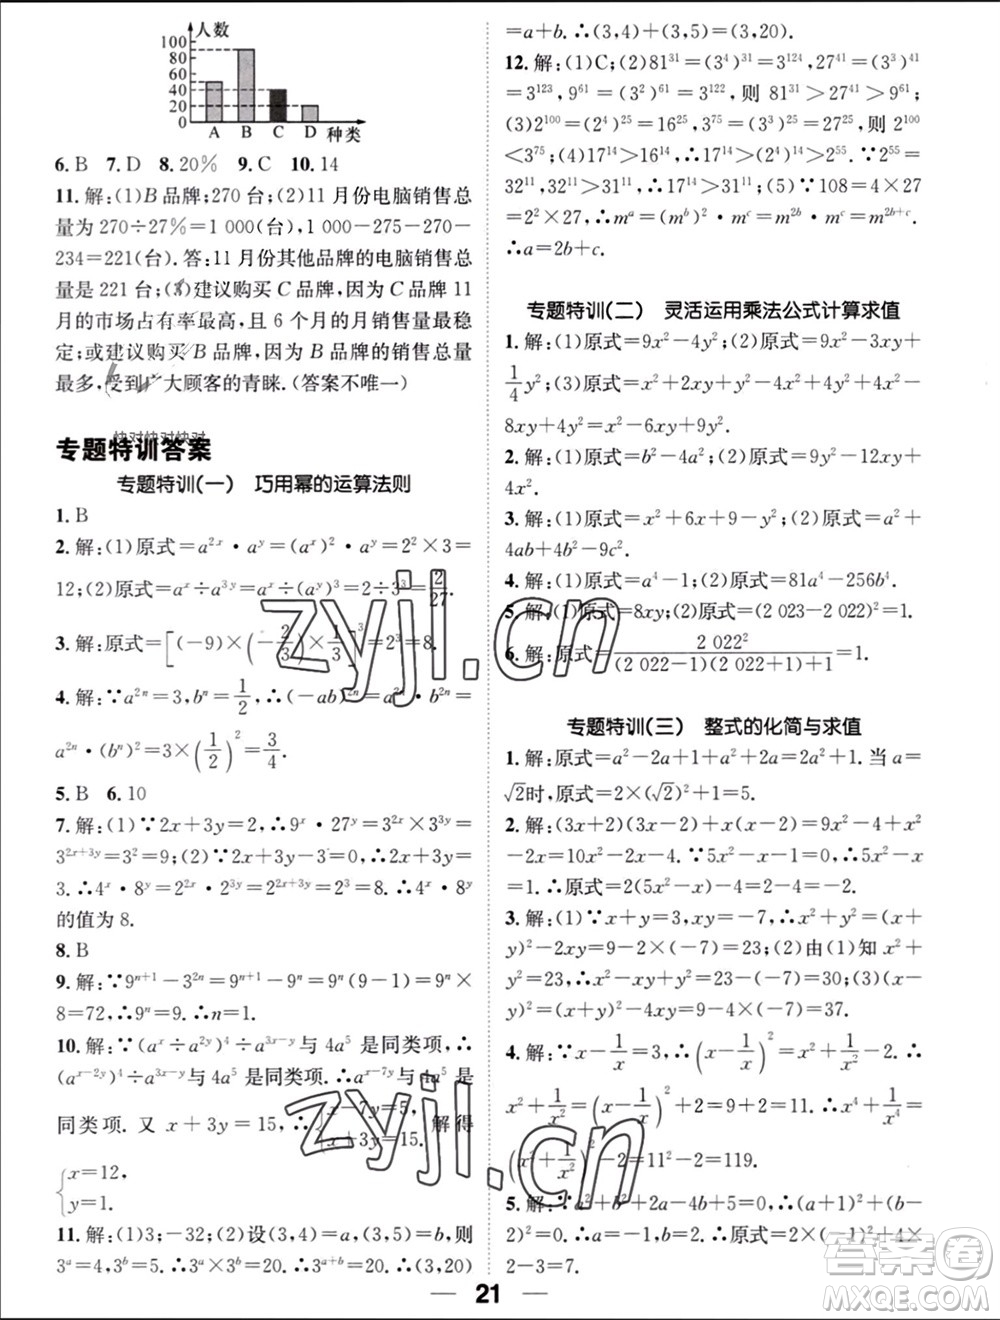 人数
100
80
60
40
20
A B C D 种类
6. B 7. D 8. 20% 9. C 10. 14
11. 解:(1)B 品牌;270 台;(2)11 月份电脑销售总
量为 270÷27%=1 000(台),1 000-275-270-
234=221(台). 答:11 月份其他品牌的电脑销售总
量是 221 台;(3)建议购买 C 品牌,因为 C 品牌 11
月的市场占有率最高,且 6 个月的月销售量最稳
定;或建议购买 B 品牌,因为 B 品牌的销售总量
最多,受到广大顾客的青睐.(答案不唯一)
快对快对快对
专题特训答案
专题特训(一) 巧用幂的运算法则
1. B
2. 解:(1)原式=a²ˣ·aʸ=(aˣ)²·aʸ=2²×3=
12;(2)原式=aˣ÷a³ʸ=aˣ÷(aʸ)³=2÷3³=2/27.
3. 解:原式=[(-9)×(-2/3)×1/3]³=2³=8.
4. 解:∵a²ⁿ=3,bⁿ=1/2,∴(-ab)²ⁿ=a²ⁿ·b²ⁿ=
a²ⁿ·(bⁿ)²=3×(1/2)²=3/4.
5. B 6. 10
7. 解:(1)∵2x+3y=2,∴9ˣ·27ʸ=3²ˣ×3³ʸ=
3²ˣ⁺³ʸ=3²=9;(2)∵2x+3y-3=0,∴2x+3y=
3.∴4ˣ·8ʸ=2²ˣ·2³ʸ=2²ˣ⁺³ʸ=2³=8.∴4ˣ·8ʸ
的值为 8.
8. B
9. 解:∵9ⁿ⁺¹-3²ⁿ=9ⁿ⁺¹-9ⁿ=9ⁿ(9-1)=9ⁿ×
8=72,∴9ⁿ=9.∴n=1.
10. 解:∵(aˣ÷a²ʸ)⁴÷a³ˣ⁻ʸ与 4a⁵ 是同类项,∴
(aˣ⁻²ʸ)⁴÷a³ˣ⁻ʸ与 4a⁵ 是同类项.∴aˣ⁻⁷ʸ与 4a⁵ 是
同类项. 又 x+3y=15,∴{x-7y=5, x+3y=15. 解得
{x=12,
y=1.
11. 解:(1)3;-32;(2)设(3,4)=a,(3,5)=b,则
3ᵃ=4,3ᵇ=5.∴3ᵃ×3ᵇ=20.∴3ᵃ⁺ᵇ=20.∴(3,20)
=a+b.∴(3,4)+(3,5)=(3,20).
12. 解:(1)C;(2)81³¹=(3⁴)³¹=3¹²⁴,27⁴¹=(3³)⁴¹
=3¹²³,9⁶¹=(3²)⁶¹=3¹²²,则 81³¹>27⁴¹>9⁶¹;
(3)2¹⁰⁰=(2⁴)²⁵=16²⁵,3⁷⁵=(3³)²⁵=27²⁵,则 2¹⁰⁰
<3⁷⁵;(4)17¹⁴>16¹⁴,∴17¹⁴>(2⁴)¹⁴>2⁵⁵.∵2⁵⁵=
32¹¹,32¹¹>31¹¹,∴17¹⁴>31¹¹;(5)∵108=4×27
=2²×27,∴mᵃ=(mᵇ)²·mᶜ=m²ᵇ·mᶜ=m²ᵇ⁺ᶜ.
∴a=2b+c.
专题特训(二) 灵活运用乘法公式计算求值
1. 解:(1)原式=9x²-4y²;(2)原式=x²-xy+
1/4y²;(3)原式=x²+4xy+4y²+4x²-4xy-
8xy+4y²=x²+4x²-8xy+4y²+4y²=5x²-
8xy+8y².
2. 解:(1)原式=b²-4a²;(2)原式=9y²-12xy+
4x².
3. 解:(1)原式=x²+6x+9-y²;(2)原式=a²+
4ab+4b²-9c².
4. 解:(1)原式=a⁴-1;(2)原式=81a⁴-256b⁴.
5. 解:(1)原式=8xy;(2)原式=(2 023-2 022)²=1.
6. 解:原式=2 022²/((2 022-1)(2 022+1)+1)=1.
专题特训(三) 整式的化简与求值
1. 解:原式=a²-2a+1+a²+2a=2a²+1. 当 a=
√2时,原式=2×(√2)²+1=5.
2. 解:(3x+2)(3x-2)+x(x-2)=9x²-4+x²
-2x=10x²-2x-4.∵5x²-x-1=0,∴5x²-x=
1.∴原式=2(5x²-x)-4=-2.
3. 解:(1)∵x+y=3,xy=-7,∴x²+y²=(x+
y)²-2xy=9-2×(-7)=23;(2)由(1)知 x²+
y²=23,∴x²-xy+y²=23-(-7)=30;(3)(x-
y)²=(x+y)²-4xy=9-4×(-7)=37.
4. 解:∵x-1/x=3,∴(x-1/x)²=x²+1/x²-2.∴
x²+1/x²=(x-1/x)²+2=9+2=11.∴x⁴+1/x⁴=
(x²+1/x²)²-2=11²-2=119.
5. 解:∵a²+b²+2a-4b+5=0,∴(a+1)²+(b-
2)²=0.∴a=-1,b=2.∴原式=2×(-1)²+4×
2-3=7.
21
zyjl.cn
zyjl.cn
答案圈
MXQE.COM